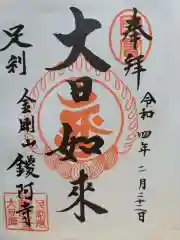 奉拝
令和四年二月二十二日
大日如来
足利
金剛山鑁阿寺